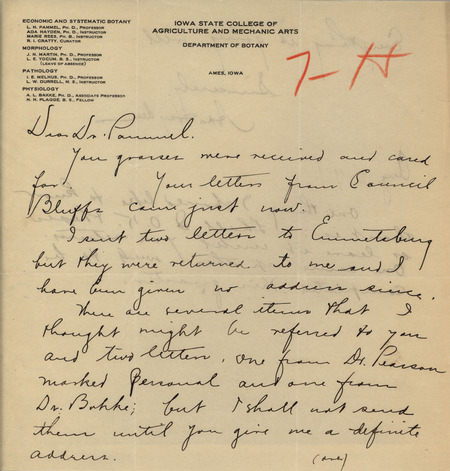 ECONOMIC AND SYSTEMATIC BOTANY
L. H. PAMMEL, PH. D., PROFESSOR
ADA HAYDEN, PH. D., INSTRUCTOR
MARIE REES, PH. B., INSTRUCTOR
R. I. CRATTY, CURATOR
MORPHOLOGY
J. N. MARTIN, PH. D., PROFESSOR
L. E. YOCUM, B. S., INSTRUCTOR
(LEAVE OF ABSENCE)
PATHOLOGY
I. E. MELHUS, PH. D., PROFESSOR
L. W. DURRELL, M. S., INSTRUCTOR
PHYSIOLOGY
A. L. BAKKE, PH. D., ASSOCIATE PROFESSOR
N. H. PLAGGE, B. S., FELLOW
IOWA STATE COLLEGE OF
AGRICULTURE AND MECHANIC ARTS
DEPARTMENT OF BOTANY
AMES, IOWA
7-H
Dear Dr. Pammel.
You grasses were received and cared
for. Your letters from Council
Bluffs cam just now.
I sent two letters to Emmetsburg
but they were returned to me and I
have been given no address since.
There are several items that I
thought might be referred to you
and two letters, one from Dr. Pearson
marked Personal and one from
Dr. Bohke; but I shall not send
them until you give me a definite
address.
(over)